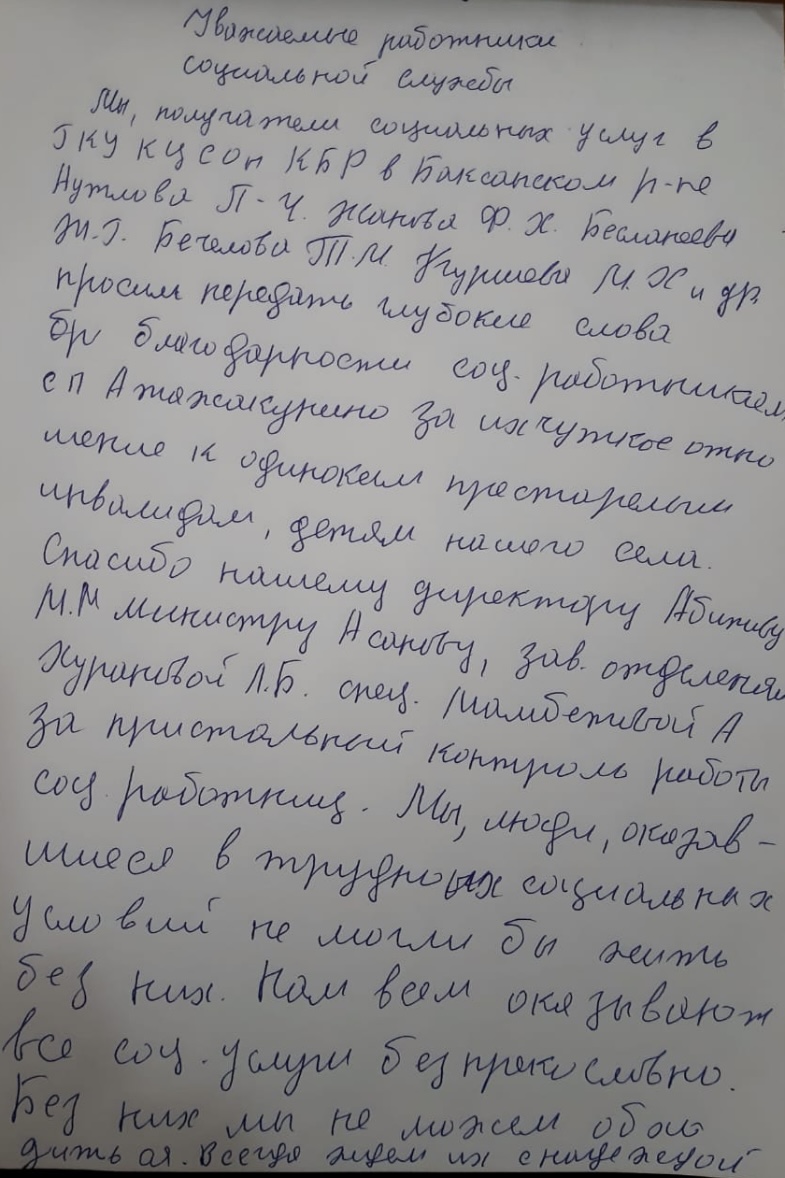 Уважаемые работники
социальной службы
Мы, получатели социальных услуг в
ГКУ КЦСОН КБР в Баксанском р-не
П. Ч. Жанова Ф. Х. Бесланеева
Ж.Г. Бечелова Т.М. М. Х и др.
просим передать глубокие слова
благодарности соц. работникам
сп Атажукино за их чуткое отно
шение к одиноким престарелым
инвалидам, детям нашего села.
Спасибо нашему директору
М.М министру Асанову, зав. отделения
Хурановой Л.Б. спец. Мамбетовой А
за пристальный контроль работы
соц. работниц. Мы, люди, оказав-
шиеся в трудных социальных
условий не могли бы жить
без них. Нам всем оказывают
все соц. услуги безпрекословно.
Без них мы не можем обой
дить ся. Всегда ждем их с надеждой